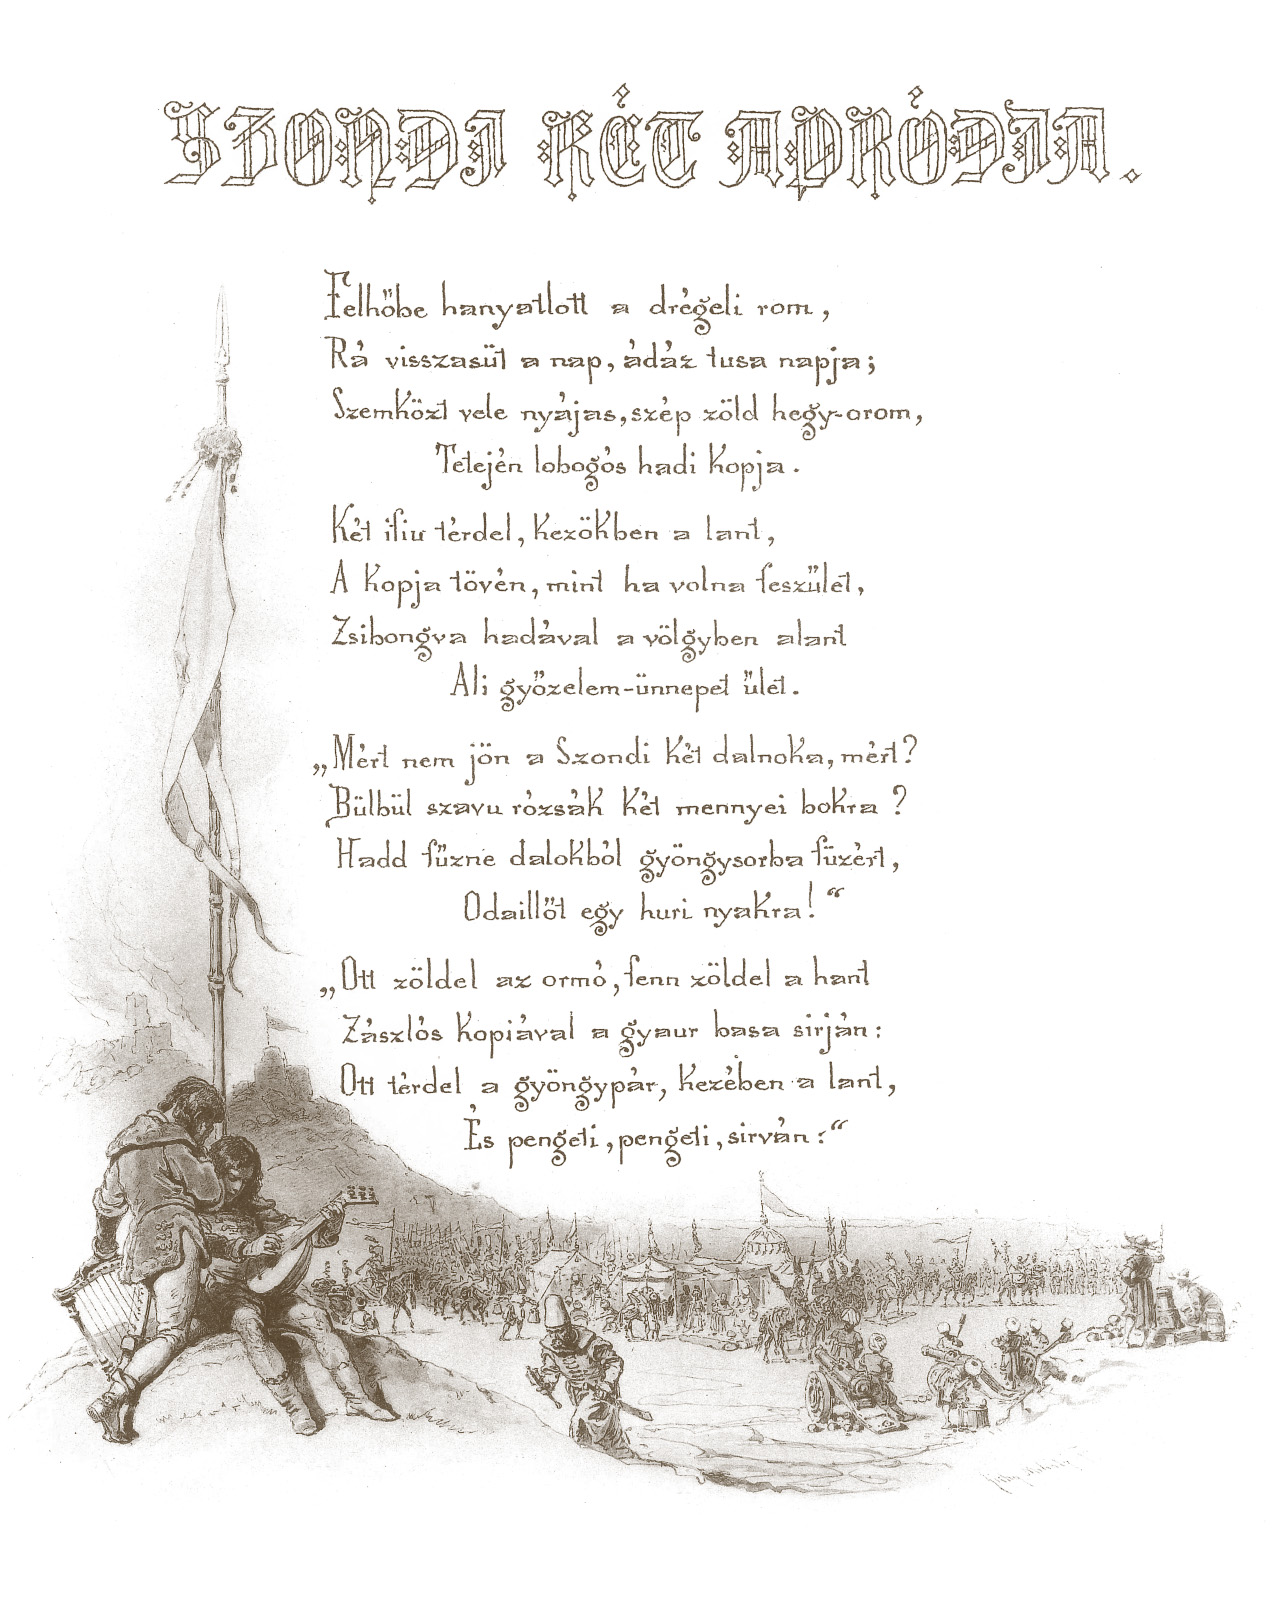 SZONDI KÉT APRÓDJA.
Felhőbe hanyatlott a drégeli rom,
Rá visszasüt a nap, ádáz tusa napja;
Szemközt vele nyájas, szép zöld hegy-orom,
Tetején lobogós hadi kopja.
Két ifiu térdel, kezökben a lant,
A kopja tövén, mint ha volna feszület,
Zsibongva hadával a völgyben alant
Ali győzelem-ünnepet űlet.
„Mért nem jön a Szondi két dalnoka, mért?
Bülbül szavu rózsák két mennyei bokra?
Hadd fűzne dalokból gyöngysorba füzért,
Odaillőt egy huri nyakra!“
„Ott zöldel az ormó, fenn zöldel a hant
Zászlós kopiával a gyaur basa sirján:
Ott térdel a gyöngypár, kezében a lant,
És pengeti, pengeti, sirván:“